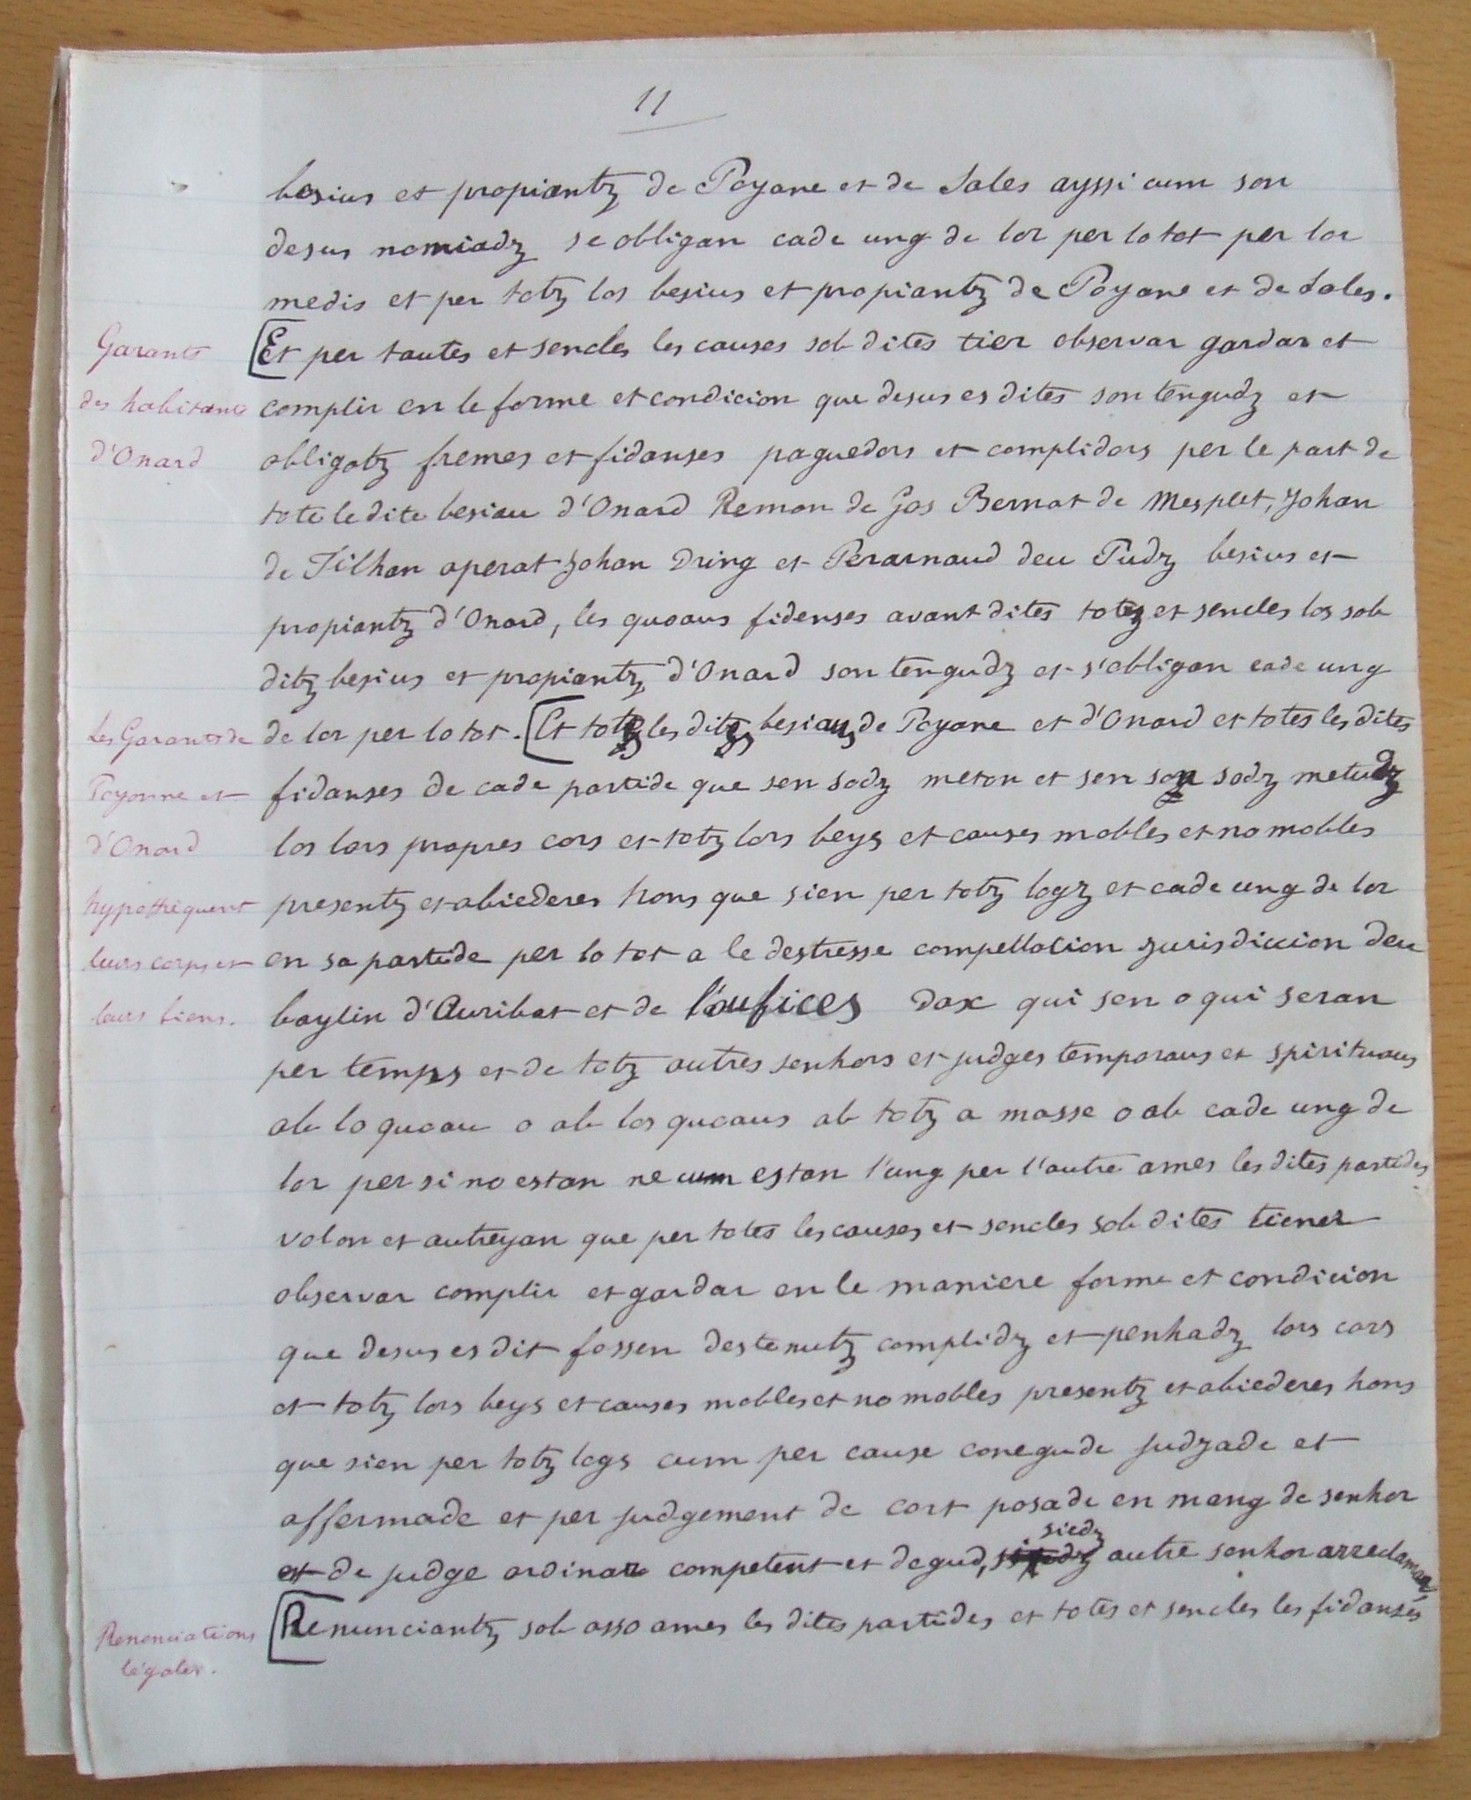 11
besius et propiantz de Poyane et de Sales ayssi cum son
desus nomiadz se obligan cade ung de lor per lo tot per lor
medis et per totz los besius et propiantz de Poyane et de Sales.
Garants
des habitants
d'Onard
[Et per toutes et sencles les causes sob dites tier observar gardar et
complir en le forme et condicion que desus es dites son tengudz et
obligatz fremes et fidanses paguedors et complidors per le part de
tote le dite besiau d'Onard Remon de Gos Bernat de Mesplet, Johan
de Tilhan aperat Johan Dring et Perarnaud deu Pudz besius et
propiantz d'Onard, les quoaus fidenses avant dites totz et sencles los sob
ditz besius et propiantz d'Onard son tengudz et s'obligan cade ung
Les Garants de
Poyanne et
d'Onard
hypothèquent
leurs corps et
leurs biens.
de lor per lo tot. [Et totz les ditz besiaus de Poyane et d'Onard et totes les dites
fidanses de cade partide que sen sodz meton et sen son sodz metudz
los lors propres cors et totz lors beys et causes mobles et no mobles
presentz et abiederes hons que sien per totz logz et cade ung de lor
en sa partide per lo tot a le destresse compellacion jurisdiccion deu
baylin d'Auribat et de l'aufices Dax qui sen o qui seran
per temps et de totz autres senhors et judges temporaus et spirituaus
ab lo quoau o ab los quoaus ab totz a masse o ab cade ung de
lor per si no estan ne cum estan l'ung per l'autre ames les dites partides
volon et autreyan que per totes les causes et sencles sob dites tiener
observar complir et gardar en le maniere forme et condicion
que desus es dit fossen destenutz complidz et penhadz lors cors
et totz lors beys et causes mobles et no mobles presentz et abiederes hons
que sien per totz logs cum per cause conegude judzade et
affermade et per judgement de cort posade en mang de senhor
et de judge ordinar competent et degud, siedz autre senhor arreclamar,
Renonciations
légales.
[Renunciantz sob asso ames les dites partides et totes et sencles les fidanses